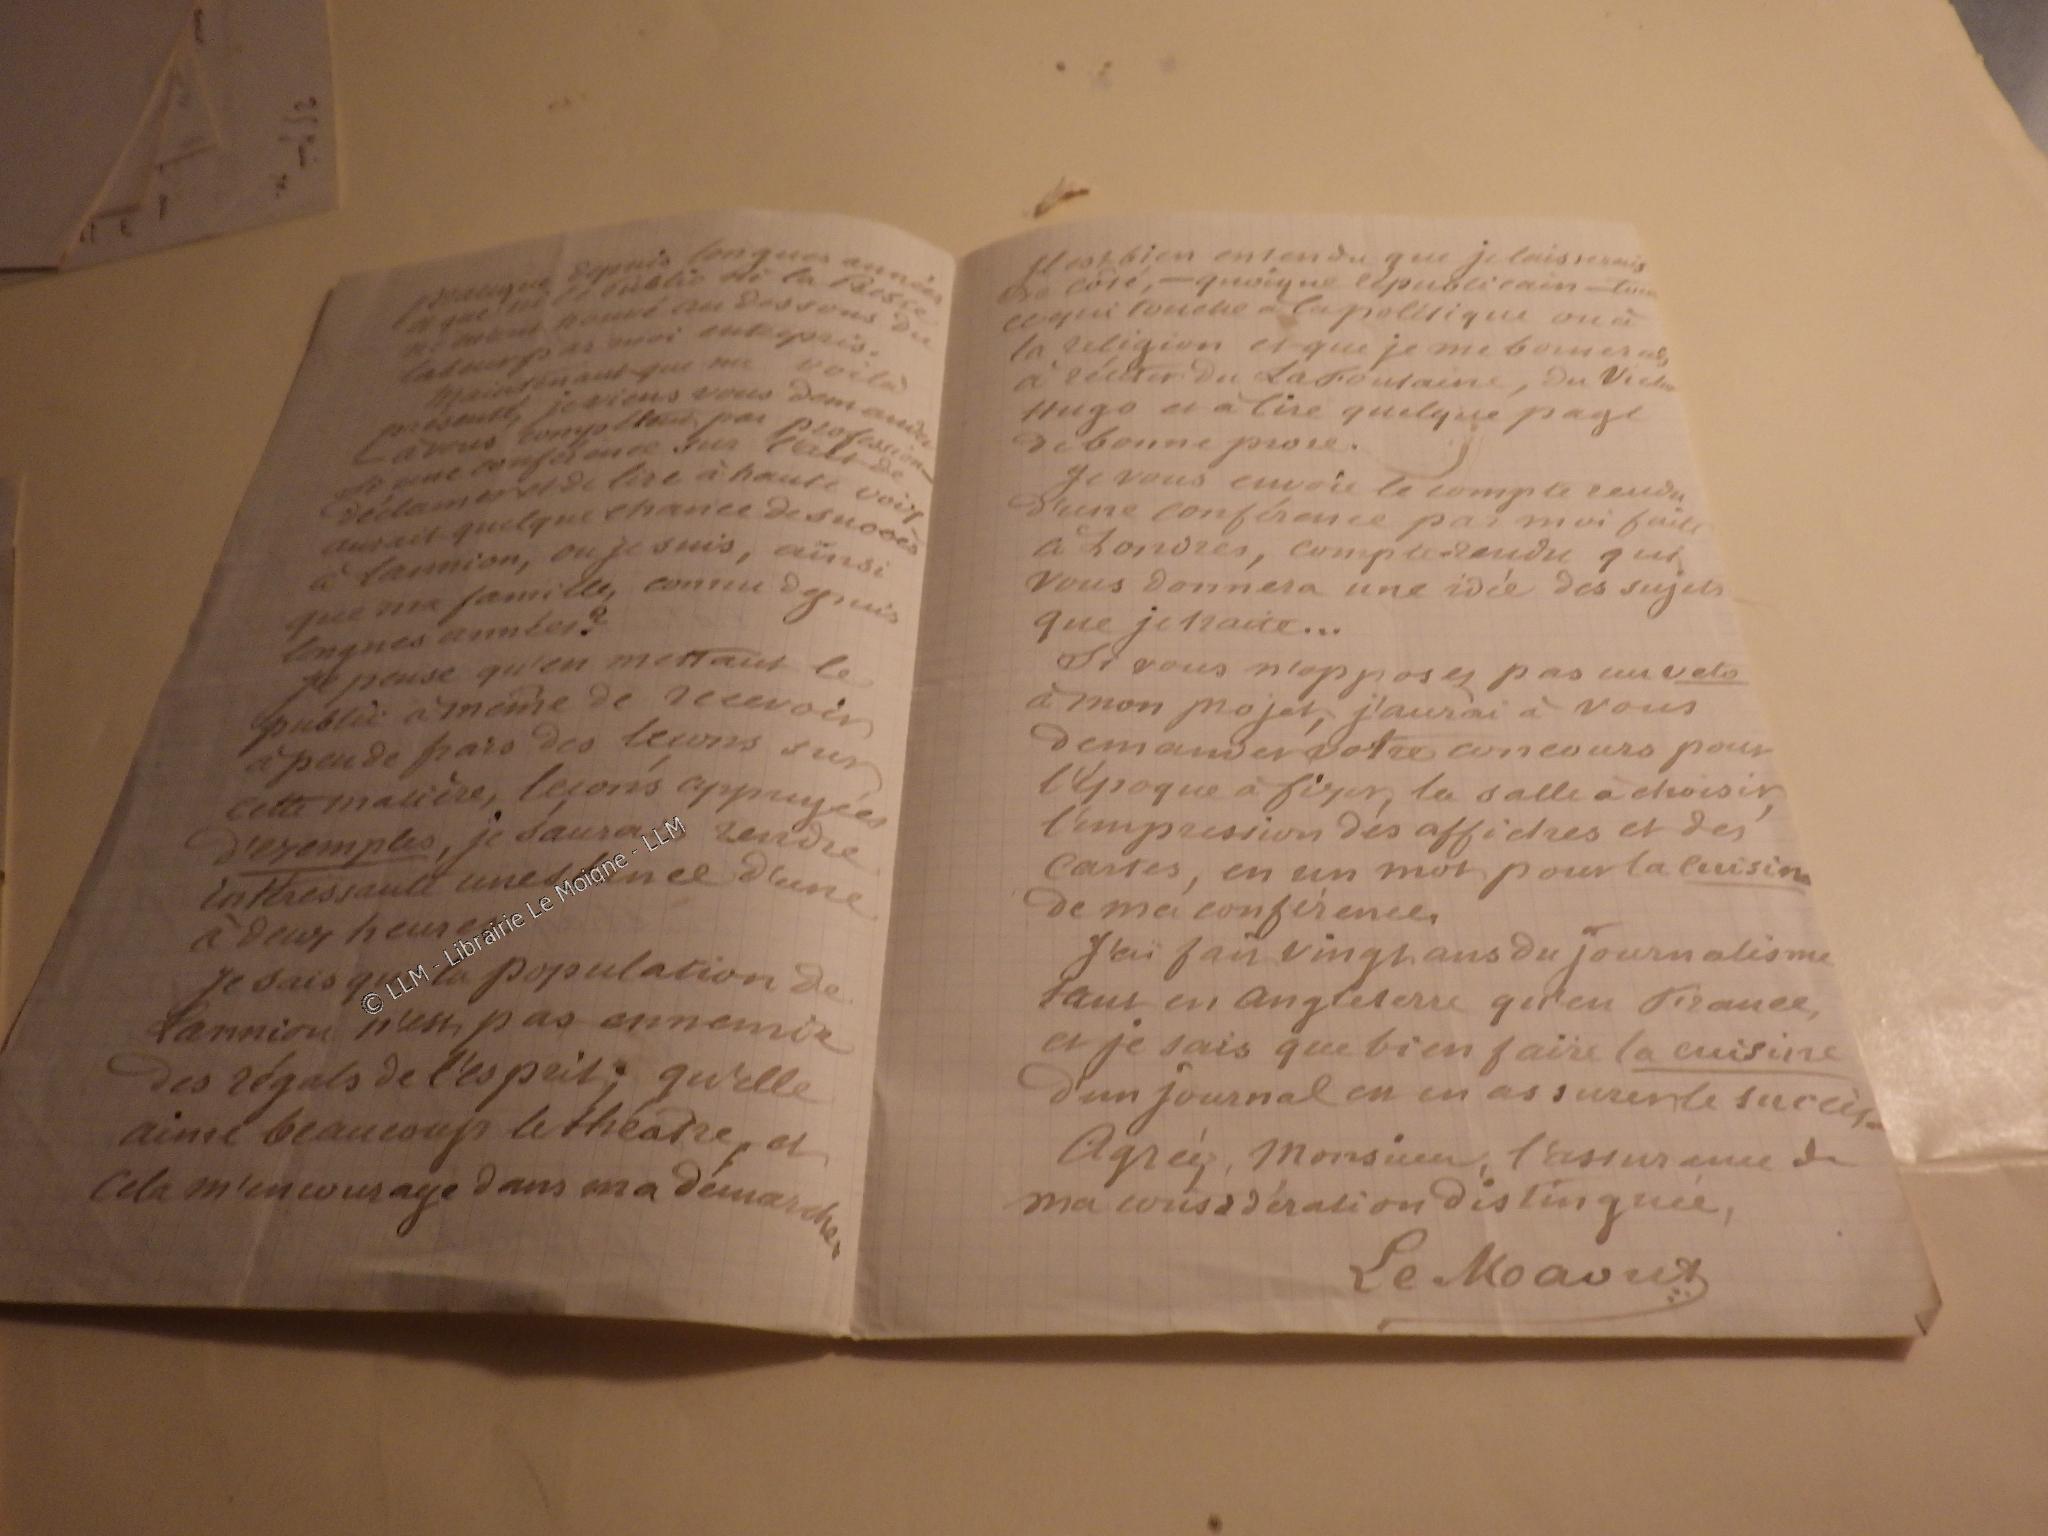 pratique depuis longues années
et que ni le public ni la Presse
ne m'ont trouvé au dessous du
labeur par moi entrepris.
Maintenant que me voilà
présenté, je viens vous demander
à vous compétent par profession—
si une conférence sur l'art de
déclamer et de lire à haute voix
aurait quelque chance de succès
à Lannion, où je suis, ainsi
que ma famille, connu depuis
longues années?
Je pense qu'en mettant le
public à même de recevoir
à peu de frais des leçons sur
cette matière, leçons appuyées
d'exemples, je saurai rendre
intéressante une séance d'une
à deux heures
Je sais que la population de
Lannion n'est pas ennemie
des régals de l'esprit; qu'elle
aime beaucoup le théâtre, et
cela m'encourage dans ma démarche.
Il est bien entendu que je laisserais
de côté, — quoique républicain — tout
ce qui touche à la politique ou à
la religion et que je me bornerais,
à réciter du LaFontaine, du Victor
Hugo et à lire quelque page
de bonne prose.
Je vous envoie le compte rendu
d'une conférence par moi faite
à Londres, compte-rendu qui
vous donnera une idée des sujets
que je traite...
Si vous n'opposez pas un veto
à mon projet, j'aurai à vous
demander votre concours pour
l'Époque à fixer, la salle à choisir,
l'impression des affiches et des
cartes, en un mot pour la cuisine
de ma conférence.
J'ai fait vingt ans du journalisme
tant en Angleterre qu'en France,
et je sais que bien faire la cuisine
d'un journal en en assurer le succès.
Agréez, Monsieur, l'assurance de
ma considération distinguée,
Le Moaout
© LLM - Librairie Le Moigne - LLM